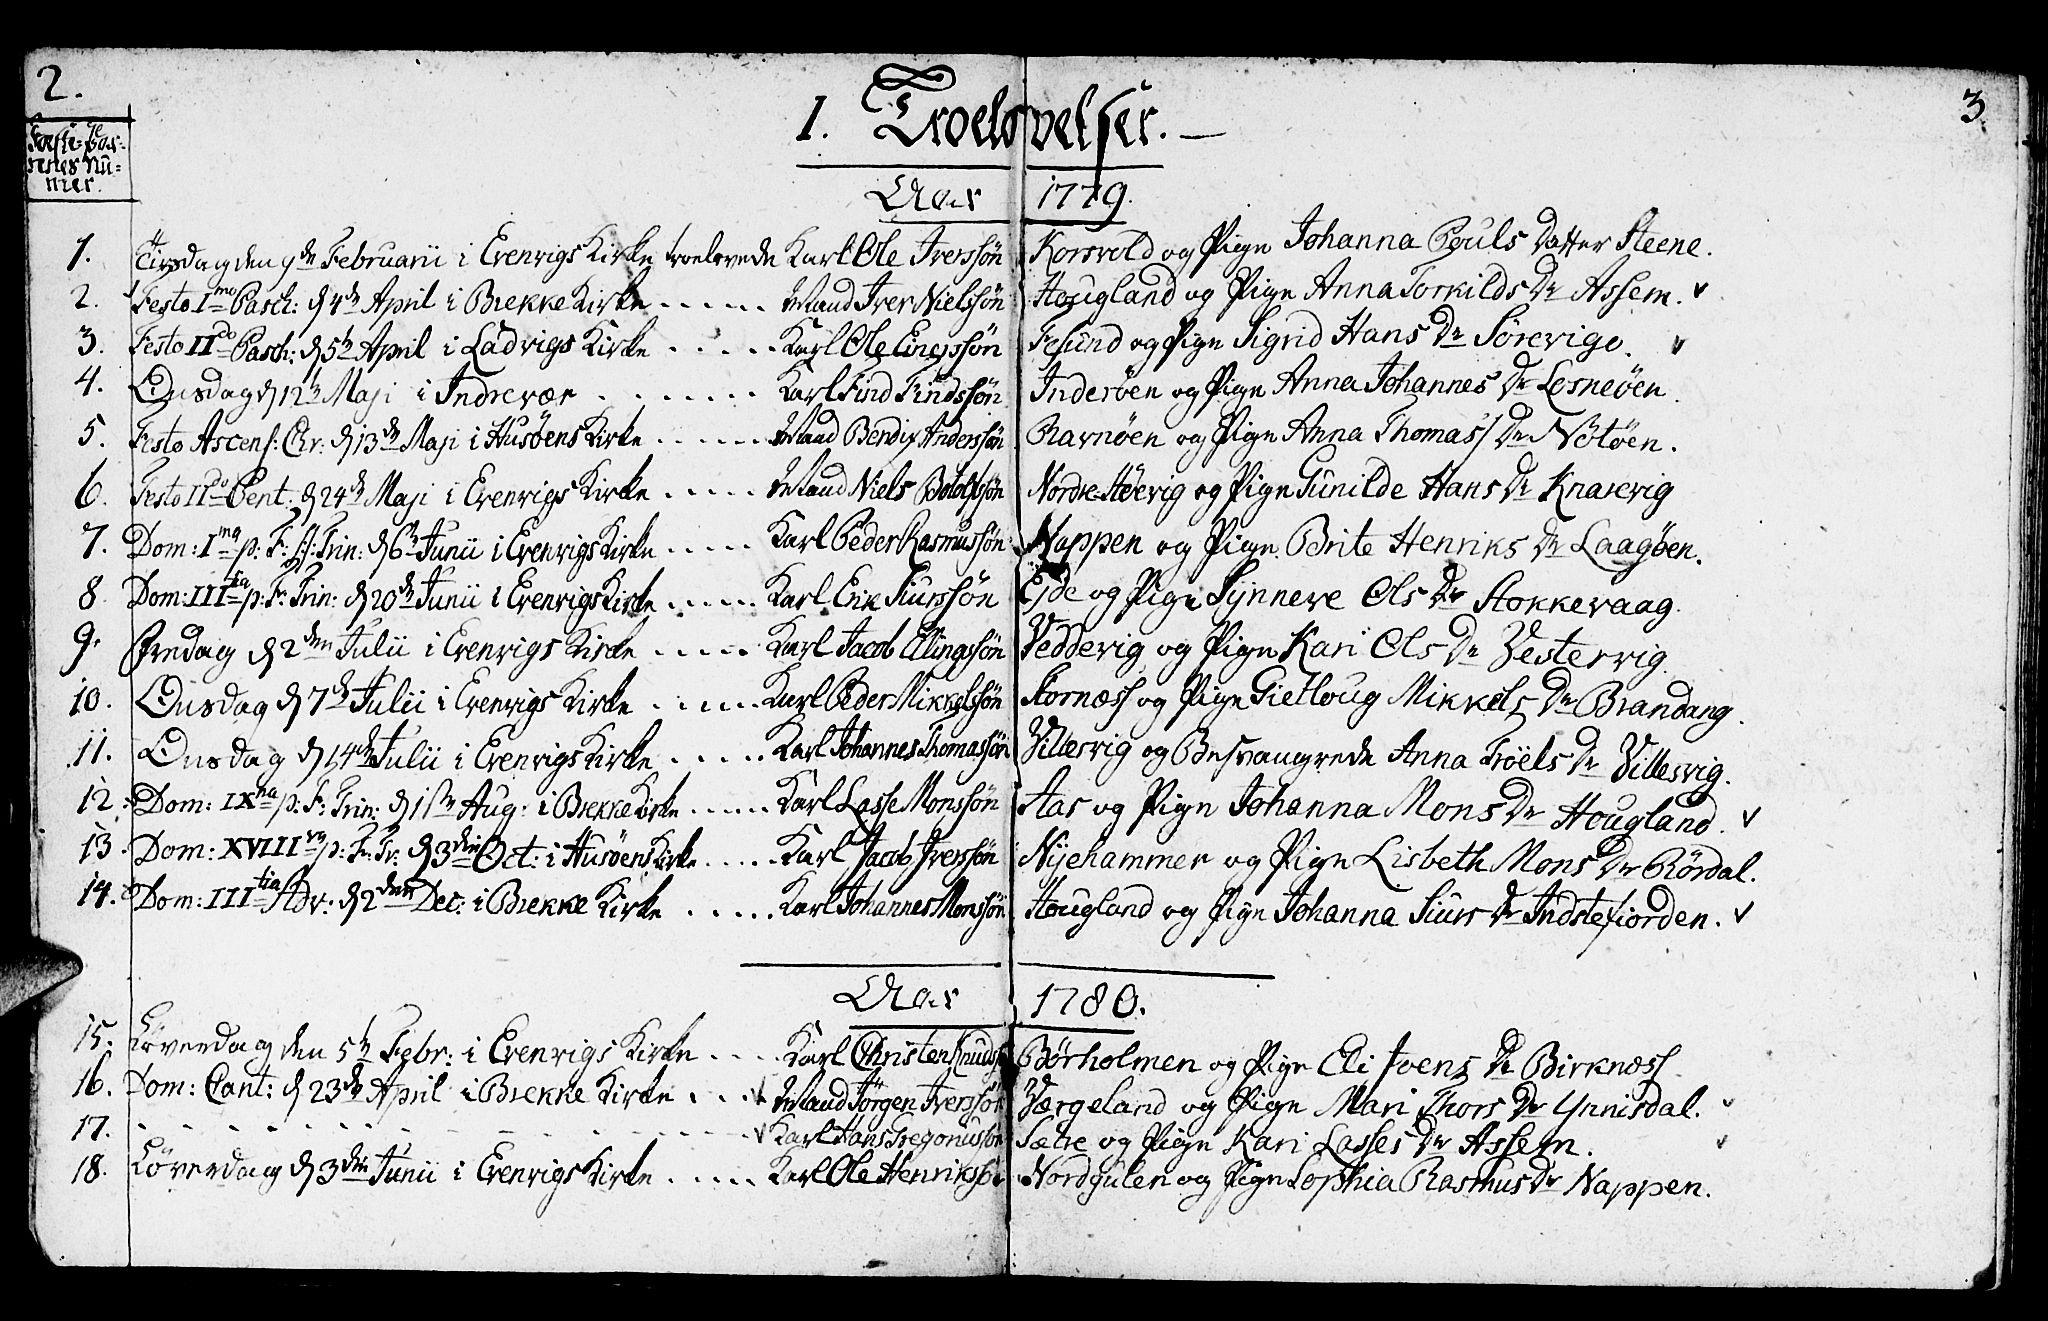 2.
3
I. Troelovelser.
Parrenes Nu-
mer.
Aar 1779.
1. Tirsdag den 9de Februarii i Evenvigs Kirke troelovede Karl Ole Iverssøn Korsvold og Pige Johanna Pouls Datter Steene.
2. Festo Imo Pasch: d 4de April i Brekke Kirke . . . . . . Mand Iver Nielssøn Hougland og Pige Anna Torkilds Dr Assem. v
3. Festo IIdo Pasch: d 5te April i Ladvigs Kirke . . . . . Karl Ole Einerssøn Fesund og Pige Sigrid Hans Dr Sørevige. v
4. Onsdag d 12te Maji i Indrevær . . . . . . . Karl Find Findssøn Inderøen og Pige Anna Johannes Dr Losneøen.
5. Festo Ascens: Chr: d 13de Maji i Husøens Kirke . . . . . . Mand Bendix Anderssøn Ravnøen og Pige Anna Thomas Dr Nötöen.
6. Festo IIdo Pent: d 24de Maji i Evenvigs Kirke . . . . . Mand Niels Botolfssøn Nordre Høevig og Pige Gunilde Hans Dr Knarevig
7. Dom: Ima p: F: Trin: d 6te Junii i Evenvigs Kirke . . . . . Karl Peder Rasmussøn Nappen og Pige Brite Henriks Dr Laagøen.
8 Dom: IIItia p: F: Trin: d 20de Junii i Evenvigs Kirke . . . . . Karl Erik Siurssøn Ejde og Pige Synneve Ols Dr Stokkevaag.
9. Fredag d 2den Julii i Evenvigs Kirke . . . . . Karl Jacob Ellingssøn Vedderig og Pige Kari Ols Dr Vestervig.
10. Onsdag d 7de Julii i Evenvigs Kirke . . . . . Karl Peder Mikkelssøn Stornæss og Pige Gietloug Mikkels Dr Brandang.
11. Onsdag d 14de Julii i Evenvigs Kirke . . . . . Karl Johannes Thomassøn Villesvig og Besvangrede Anna Trøels Dr Villesvig.
12. Dom: IXna p: F: Trin: d 1ste Aug: i Brekke Kirke . . . . . Karl Lasse Monssøn Aas og Pige Johanna Mons Dr Hougland. v
13. Dom: XVIII p: F: Tr: d 3die Oct: i Husøens Kirke . . . . . Karl Jacob Iverssøn Nijehammer og Pige Lisbeth Mons Dr Rørdal.
14. Dom: IIItia Adv: d 2den Dec: i Brekke Kirke . . . . . Karl Johannes Monssøn Hougland og Pige Johanna Siurs Dr Indstefiorden. v
Aar 1780.
15. Løverdag den 5te Febr: i Evenvigs Kirke . . . . Karl Christen Knuds Børholmen og Pige Eli Ivers Dr Birknæss
16. Dom: Cant: d 23de April i Brekke Kirke . . . v Mand Jørgen Iverssøn Værgeland og Pige Mari Thors Dr Ynnisdal. v
17. - - - - - - - - - - - - v Karl Hans Gregoriussøn Sætre og Pige Kari Lasses Dr Assem. v
18. Løverdag d 3die Junii i Evenvigs Kirke . . . . . Karl Ole Henrikssøn Nordgulen og Pige Sophia Rasmus Dr Nappen.